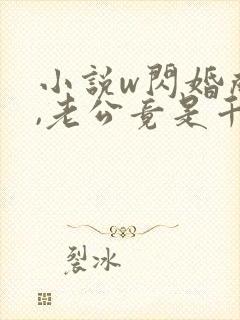 小説w閃婚
,老公竟是千
裂冰